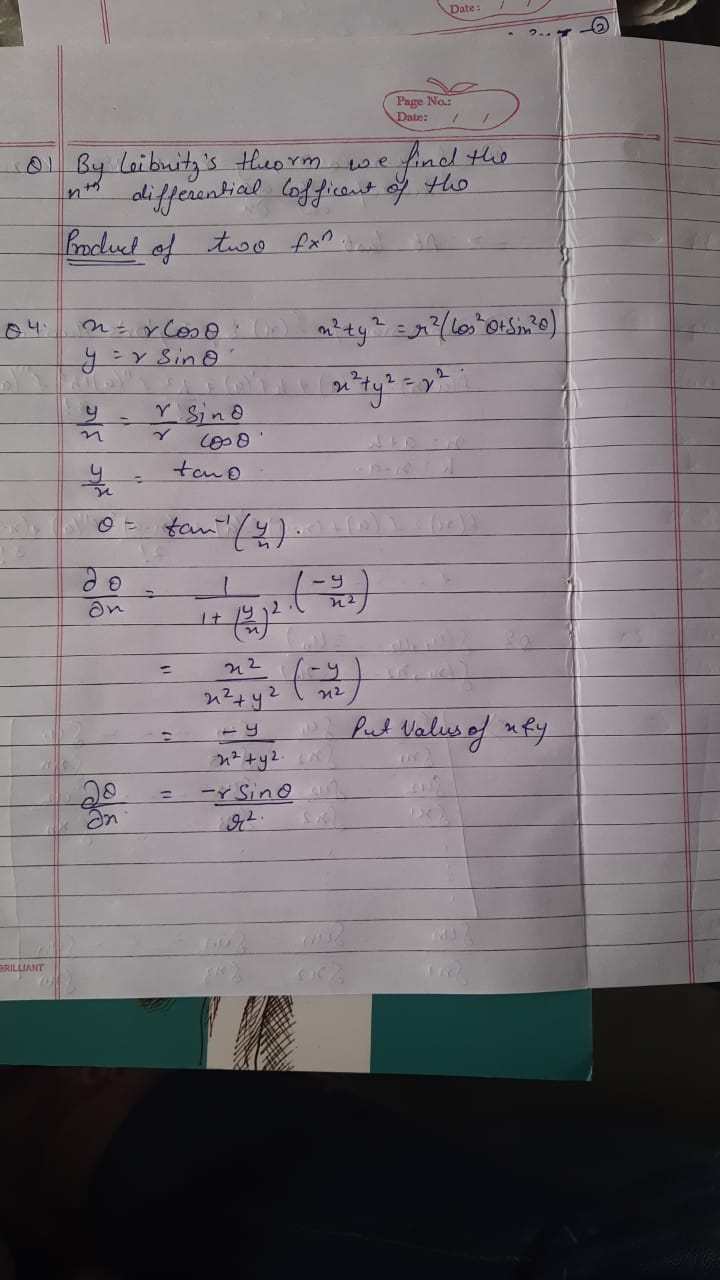 Date: / /
②
Page No.:
Date: / /
Q1 By Leibnitz's theorm we find the
nth differential Cofficent of the
Product of two fxⁿ.
Q4. x = r Cosθ x²+y² = r²(Cos²θ+Sin²θ)
y = r Sinθ
x²+y² = r²
y/x = r Sinθ / r Cosθ
y/x = tanθ
θ = tan⁻¹(y/x).
∂θ/∂x = 1/(1+(y/x)²) . (-y/x²)
= x²/(x²+y²) (-y/x²)
= -y/(x²+y²) Put Values of x & y
∂θ/∂x = -r Sinθ / r²
BRILLIANT